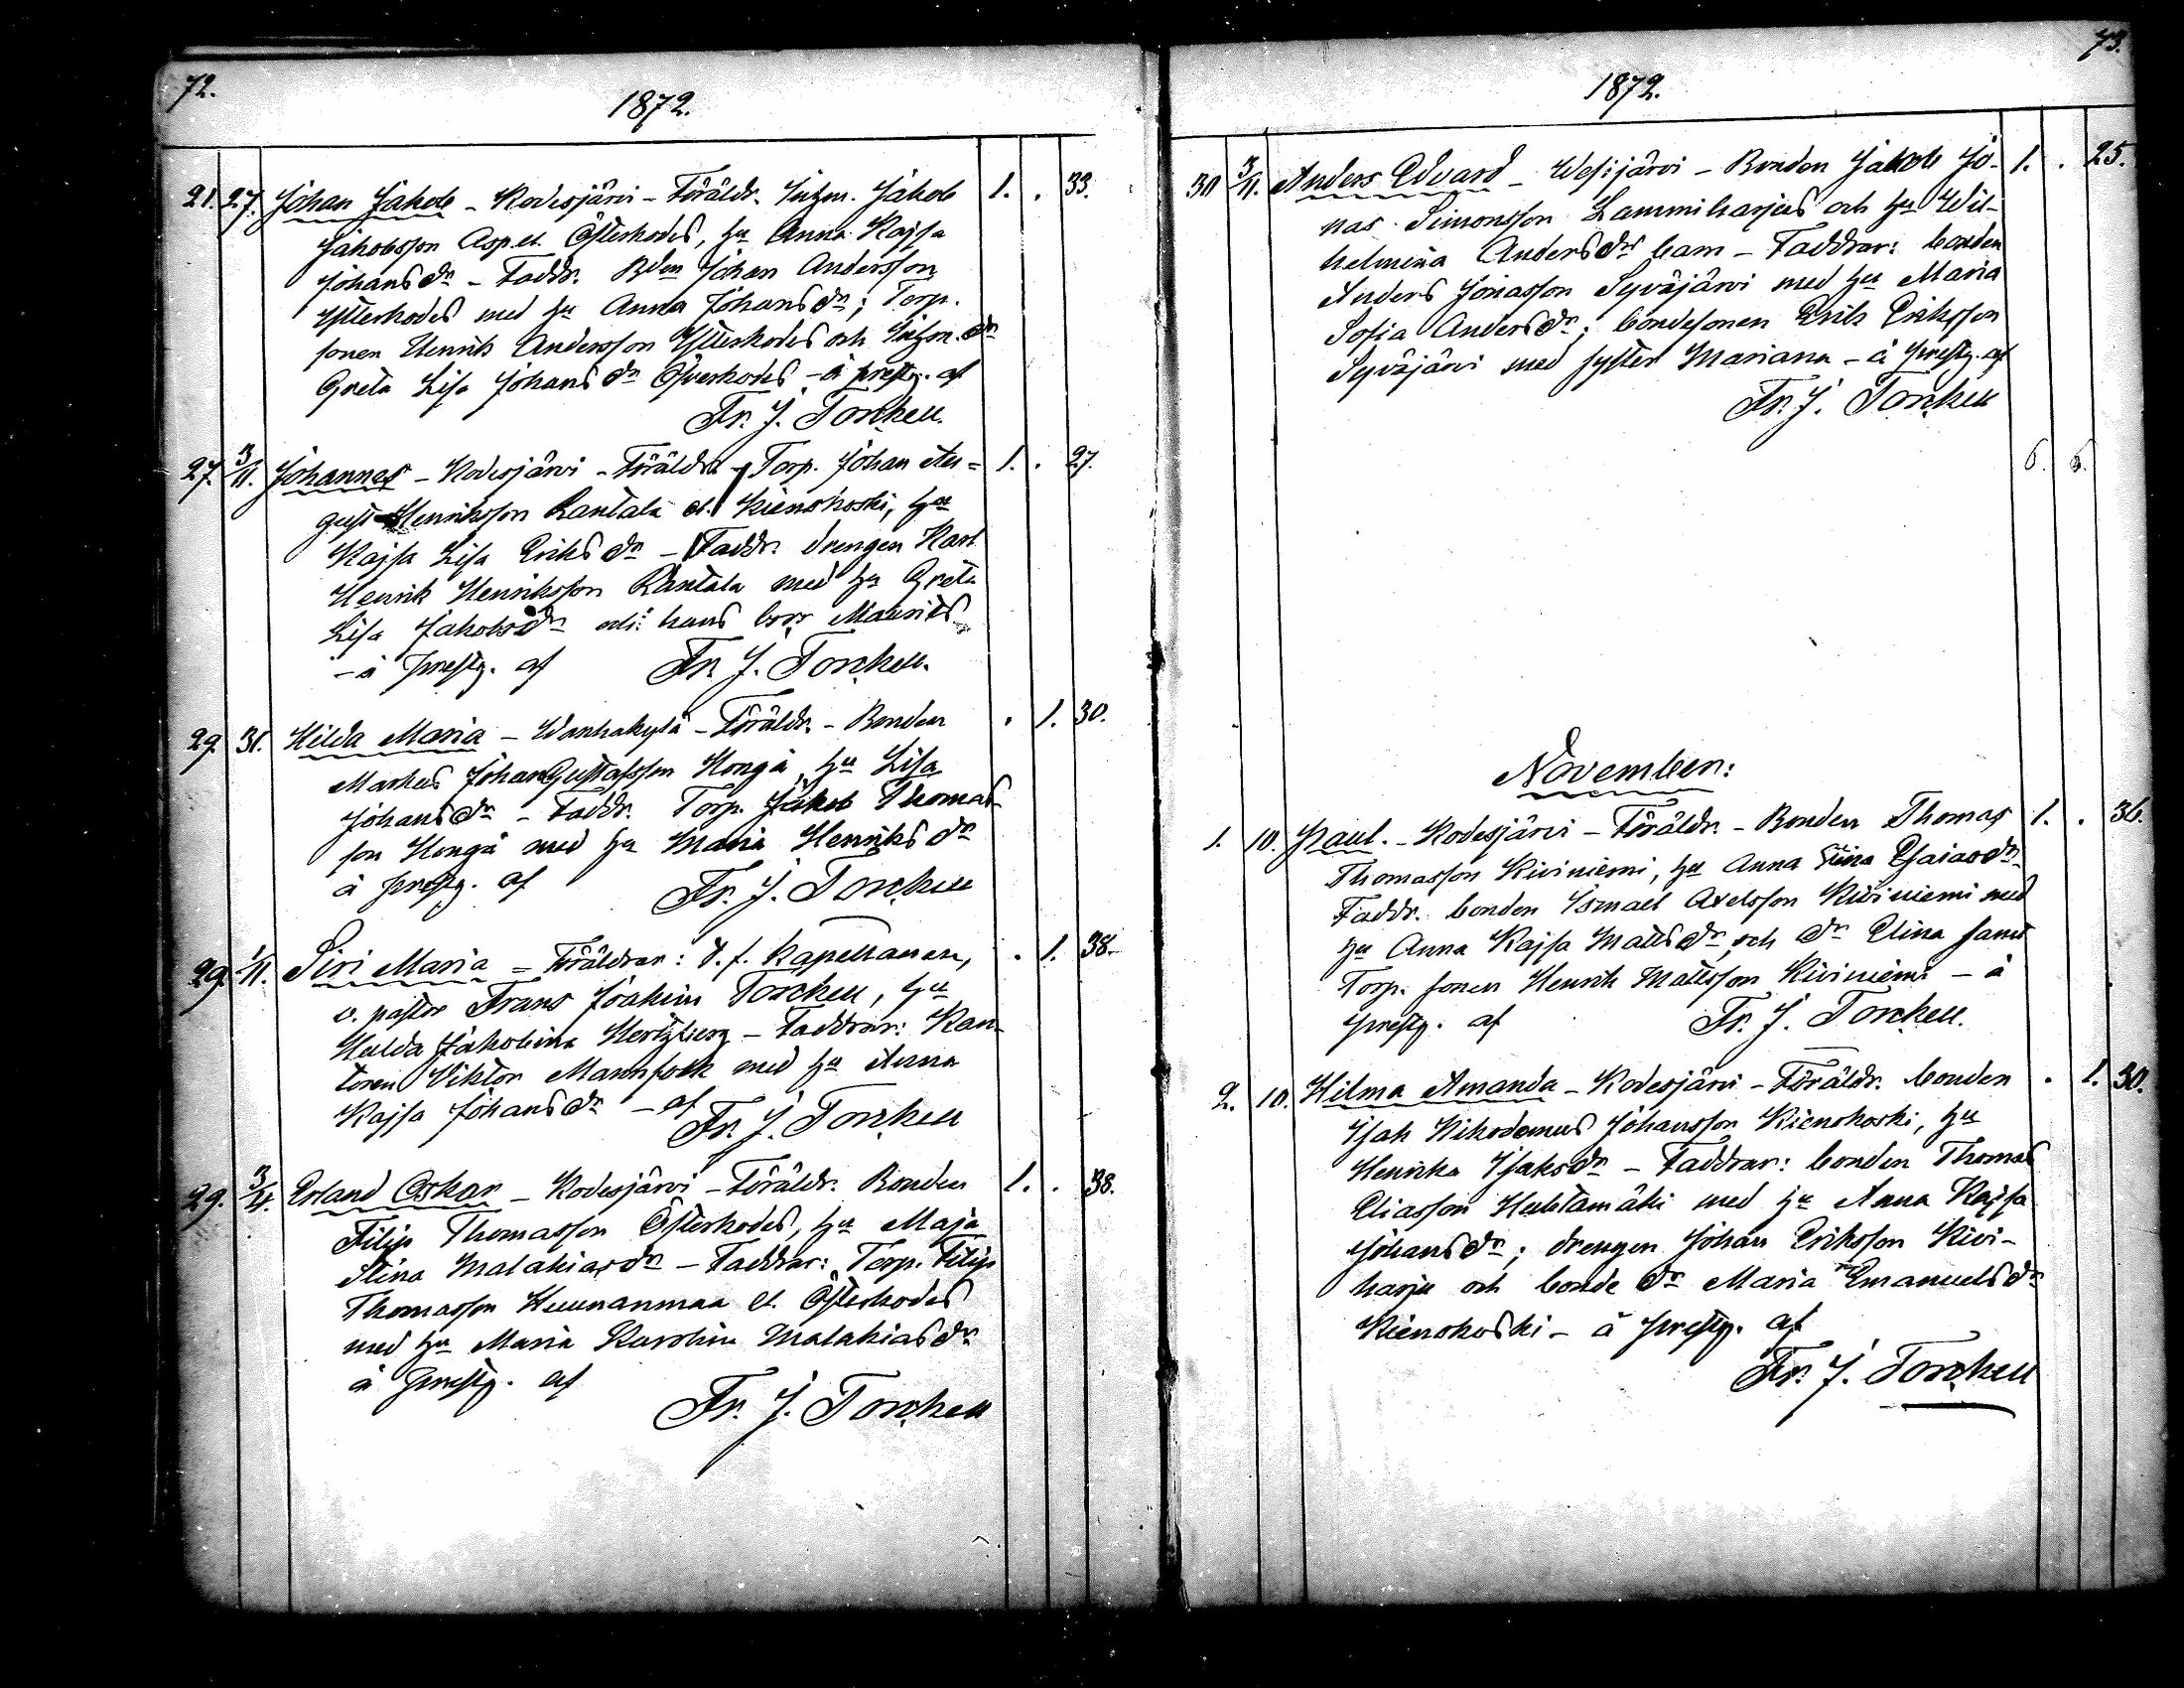 72.
1872.
21. 27. Johan Jakob - Kodesjärvi - Föräldr. Inhm. Jakob 1. . 33.
Jakobsson Asp. et. Österkodes, hu Anna Kajsa
Johansdr - Faddr. Bden Johan Andersson
Ytterkodes med hu Anna Johansdr; Torp.
sonen Henrik Andersson Ytterkodes och Inhm. dr
Greta Lisa Johansdr Öfverkodes - å prestg. af
Fr. J. Torckell.
27. 3/11. Johannes - Kodesjärvi - Föräldr. - Torp. Johan Au= 1. . 27.
gust Henriksson Rantala et. Kienokoski, hu
Kajsa Lisa Eriksdr - Faddr. drengen Karl
Henrik Henriksson Rantala med hu Greta
Lisa Jakobsdr och hans bror Maurits
- å prestg. af Fr. J. Torckell.
29. 31. Hilda Maria - Wanhakylä - Föräldr. - Bonden . 1. 30.
Markus Johan Gustafsson Hongå, hu Lisa
Johansdr - Faddr. Torp. Jakob Thomas-
son Hongå med hu Maria Henriksdr
å prestg. af Fr. J. Torckell
29. 1/11. Siri Maria = Föräldrar: t. f. Kapellanen, . 1. 38.
v. pastor Frans Joakim Torckell, hu
Hulda Jakobina Hertzberg - Faddrar: Kan-
toren Viktor Mannfolk med hu Anna
Kajsa Johansdr - af
Fr. J. Torckell
29. 3/11. Erland Oskar - Kodesjärvi - Föräldr. Bonden 1. . 38.
Filip Thomasson Österkodes, hu Maja
Stina Malakiasdr - Faddrar: Torp. Filip
Thomasson Huunanmaa et. Österkodes
med hu Maria Karolina Malakiasdr
å prestg. af
Fr. J. Torckell
73.
1872.
30 3/11. Anders Edvard - Wesijärvi - Bonden Jakob Jo- 1. . 25.
nas Simonsson Lammiharjus och hu Wil-
helmina Andersdrs barn - Faddrar: bonden
Anders Jonasson Syväjärvi med hu Maria
Sofia Andersdr; bondesonen Erik Eriksson
Syväjärvi med syster Mariana - å prestg. af
Fr. J. Torckell
6. 5.
November:
1. 10. Paul. - Kodesjärvi - Föräldr. - Bonden Thomas 1. . 36.
Thomasson Kiviniemi, hu Anna Stina Esaiasdr.
Faddr. bonden Ismael Axelsson Kiviniemi med
hu Anna Kajsa Mattsdr och dr Elina samt
Torp. sonen Henrik Mattsson Kiviniemi - å
prestg. af Fr. J. Torckell.
2. 10. Hilma Amanda - Kodesjärvi - Föräldr. bonden . 1. 30.
Isak Nikodemus Johansson Kienokoski, hu
Henrika Isaksdr - Faddrar: bonden Thomas
Eliasson Huhtamäki med hu Anna Kajsa
Johansdr; drengen Johan Eriksson Kivi-
harju och bonde dr Maria Emanuelsdr
Kienokoski - å prestg. af
Fr. J. Torckell